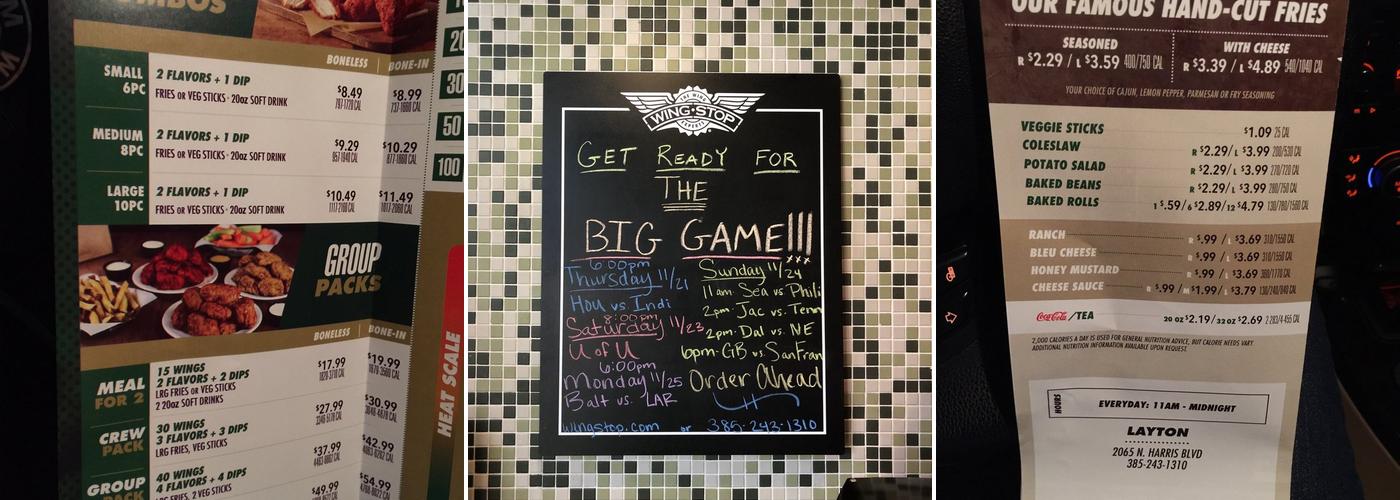 BONELESS BONE-IN
SMALL 6PC
2 FLAVORS + 1 DIP
FRIES OR VEG STICKS · 20oz SOFT DRINK
$8.49 $8.99
MEDIUM 8PC
2 FLAVORS + 1 DIP
FRIES OR VEG STICKS · 20oz SOFT DRINK
$9.29 $10.29
LARGE 10PC
2 FLAVORS + 1 DIP
FRIES OR VEG STICKS · 20oz SOFT DRINK
$10.49 $11.49
GROUP
PACKS
BONELESS BONE-IN
MEAL FOR 2
15 WINGS
2 FLAVORS + 2 DIPS
LRG FRIES OR VEG STICKS
2 20oz SOFT DRINKS
$17.99 $19.99
CREW PACK
30 WINGS
3 FLAVORS + 3 DIPS
LRG FRIES, VEG STICKS
$27.99 $30.99
GROUP
40 WINGS
4 FLAVORS + 4 DIPS
$37.99 $42.99
$49.99 $54.99
30
50
100
HEAT SCALE
THE WING EXPERTS
WING·STOP
GET READY FOR
THE
BIG GAME!!!
6:00pm
Thursday 11/21
Hou vs. Indi
8:00pm
Saturday 11/23
U of U
6:00pm
Monday 11/25
Balt vs. LAR
Sunday 11/24
11am · Sea vs Phili
2pm · Jac vs. Tenn
2pm · Dal vs. NE
6pm · GB vs. SanFran
Order Ahead
wingstop.com or 385-243-1310
OUR FAMOUS HAND-CUT FRIES
SEASONED
R $2.29 / L $3.59 400/750 CAL
WITH CHEESE
R $3.39 / L $4.89 540/1040 CAL
YOUR CHOICE OF CAJUN, LEMON PEPPER, PARMESAN OR FRY SEASONING
VEGGIE STICKS $1.09 25 CAL
COLESLAW R $2.29/ L $3.99
POTATO SALAD R $2.29/ L $3.99
BAKED BEANS R $2.29/ L $3.99 280/750 CAL
BAKED ROLLS 1 $.59/ 6 $2.89/ 12 $4.79
RANCH R $.99 / L $3.69 310/1550 CAL
BLEU CHEESE R $.99 / L $3.69 310/1550 CAL
HONEY MUSTARD R $.99 / L $3.69
CHEESE SAUCE R $.99 / M $1.99 / L $3.79
Coca-Cola /TEA 20 OZ $2.19/32 OZ $2.69
2,000 CALORIES A DAY IS USED FOR GENERAL NUTRITION ADVICE, BUT CALORIE NEEDS VARY
ADDITIONAL NUTRITION INFORMATION AVAILABLE UPON REQUEST.
HOURS
EVERYDAY: 11AM - MIDNIGHT
LAYTON
2065 N. HARRIS BLVD
385-243-1310